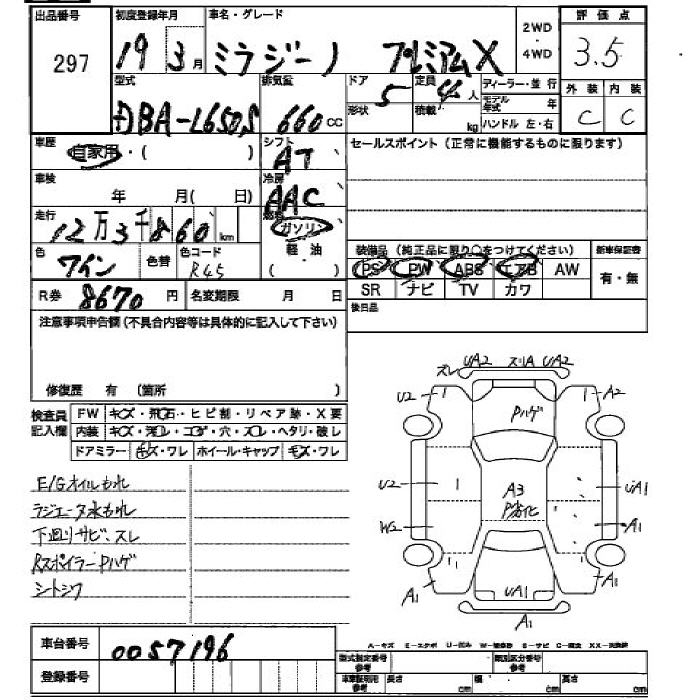 出品番号 297
初度登録年月 19 3月
車名・グレード ミラジーノ プレミアムX
2WD・4WD
評価点 3.5
型式 DBA-L650S
排気量 660 cc
ドア 5
形状
定員 4人
積載 kg
ディーラー・並行
モデル年式 年
ハンドル 左・右
外装 内装
C C
車歴 自家用・( )
シフト AT
セールスポイント (正常に機能するものに限ります)
車検 年 月( 日)
冷房 AAC
走行 12万3千860 km
燃料 ガソリン
軽・油
( )
色 ワイン 色替 色コード R45
装備品 (純正品に限り○をつけてください) 新車保証書
PS PW ABS エアB AW 有・無
SR ナビ TV カワ
R券 8670円 名変期限 月 日
後日品
注意事項申告欄 (不具合内容等は具体的に記入して下さい)
修復歴 有 (箇所 )
検査員記入欄
FW キズ・飛石・ヒビ割・リペア跡・X要
内装 キズ・汚レ・コゲ・穴・スレ・ヘタリ・破レ
ドアミラー キズ・ワレ ホイール・キャップ キズ・ワレ
E/Gオイルもれ
ラジエータ水もれ
下廻りサビ、スレ
RスポイラーPハゲ
シートシワ
スレ UA2 スリA UA2
U2 A2
Pハゲ
U2 A3 UA1
P劣化
W2 A1
A1 UA1 A1
A1
A-キズ E-エクボ U-凹み S-サビ
車台番号 0057196
登録番号
型式指定番号 参考
類別区分番号 参考
車庫証明用 参考 長さ cm 幅 cm 高さ cm